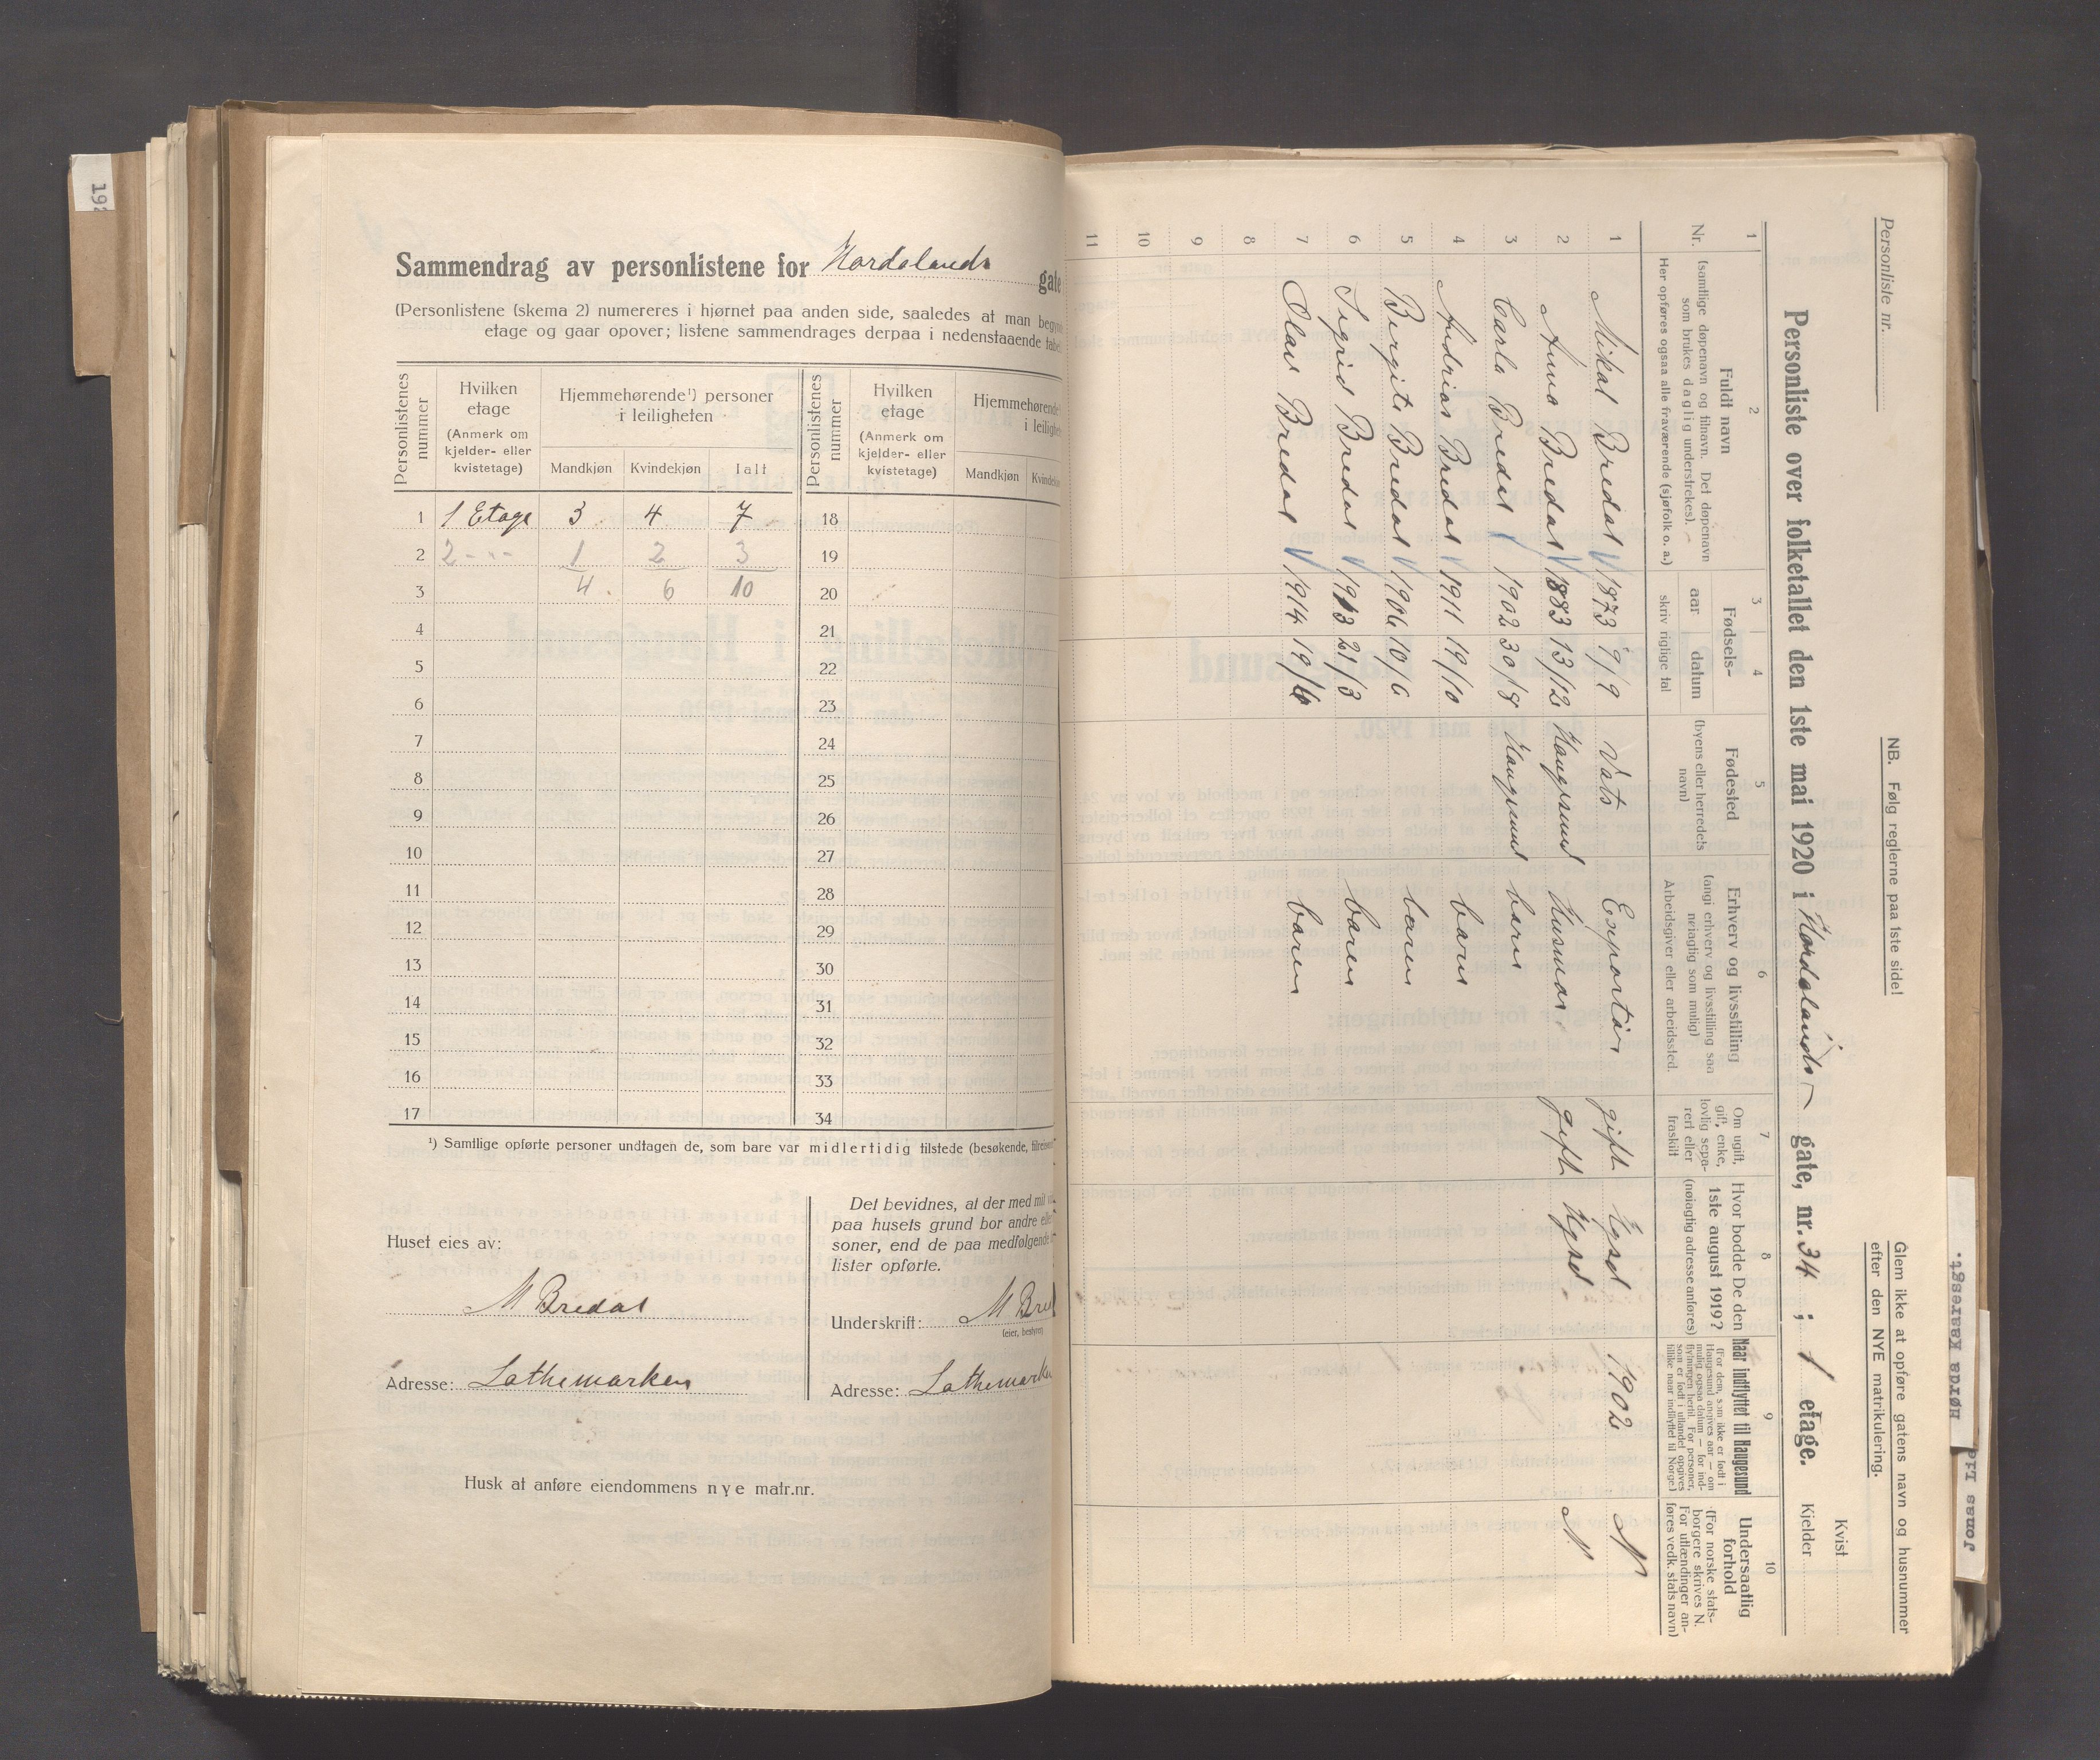 192
Sammendrag av personlistene for Hordalands gate
(Personlistene (skema 2) numereres i hjørnet paa anden side, saaledes at man begyn
etage og gaar opover; listene sammendrages derpaa i nedenstaaende tabel
Personlistenes nummer
Hvilken etage
(Anmerk om kjelder- eller kvistetage)
Hjemmehørende¹) personer i leiligheten
Mandkjøn Kvindekjøn Ialt
Personlistenes nummer
Hvilken etage
(Anmerk om kjelder- eller kvistetage)
Hjemmehørende
i leilighe
Mandkjøn Kvindekjø
1 1 Etage 3 4 7 18
2 2 - " - 1 2 3 19
3 4. 6 10 20
4 21
5 22
6 23
7 24
8 25
9 26
10 27
11 28
12 29
13 30
14 31
15 32
16 33
17 34
¹) Samtlige opførte personer undtagen de, som bare var midlertidig tilstede (besøkende, tilreisen
Huset eies av:
M Bredal
Adresse: Lothemarken
Det bevidnes, at der med mit
paa husets grund bor andre elle
soner, end de paa medfølgende
lister opførte.
Underskrift: M Bred
(eier, bestyrer)
Adresse: Lothemarke
Husk at anføre eiendommens nye matr.nr.
Personliste nr.
NB. Følg reglerne paa 1ste side!
Glem ikke at opføre gatens navn og husnummer
efter den NYE matrikulering.
Personliste over folketallet den 1ste mai 1920 i Hordalands gate, nr. 34 ; 1 etage.
Kvist
Kjelder
1 2 3 4 5 6 7 8 9 10
Nr.
Fuldt navn
(samtlige døpenavn og tilnavn. Det døpenavn
som brukes daglig understrekes).
Her opføres ogsaa alle fraværende (sjøfolk o. a.)
Fødsels-
aar datum
skriv rigtige tal
Fødested
(byens eller herredets
navn)
Erhverv og livsstilling
(angi erhverv og livsstilling saa
nøiagtig som mulig)
Arbeidsgiver eller arbeidssted.
Om ugift,
gift, enke,
lovlig sepa-
rert eller
fraskilt
Hvor bodde De den
1ste august 1919?
(nøiagtig adresse anføres)
Naar indflyttet til Haugesund
(For dem, som ikke er født i
Haugesund angives aar — om
mulig ogsaa datum — for ind-
flytningen hertil. For personer,
som er født i utlandet opgives
tillike naar indflyttet til Norge.)
Undersaatlig
forhold
(For norske stats-
borgere skrives N.
For utlændinger an-
føres vedk. stats navn)
1 Mikal Bredal 1873 9/9 Vats Exportør gift Hgsd 1902 N
2 Anna Bredal 1883 13/12 Haugesund Husmor. gift Hgsd N.
3 Carla Bredal 1902 30/8 Haugesund barn
4 Andrias Bredal 1911 19/10 barn
5 Bergite Bredal 1906 10/6 baren
6 Sigrid Bredal 1913 21/3 baren
7 Olav Bredal 1914 19/6 baren
8
9
10
11
Hørda Kaaresgt.
Jonas Lie